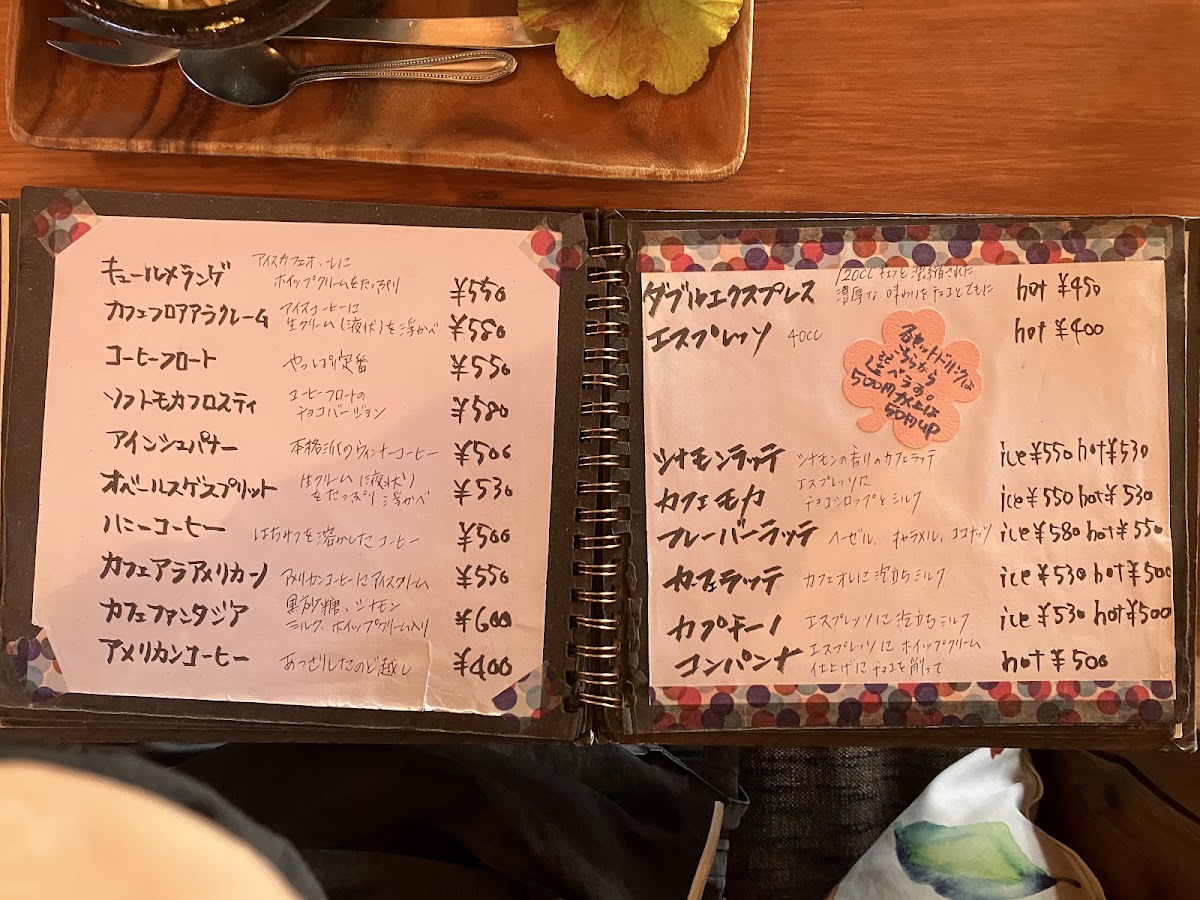 キュールメランゲ アイスカフェオーレに
ホイップクリームをたっぷり ¥550
カフェフロアアラクレーム アイスコーヒーに
生クリーム(液状)を浮かべ ¥580
コーヒーフロート やっぱり定番 ¥550
ソフトモカフロスティ コーヒーフロートの
チョコバージョン ¥580
アインシュパナー 本格派のウィンナーコーヒー ¥500
オベールスゲスプリット 生クリーム(液状)
をたっぷり浮かべ ¥530
ハニーコーヒー はちみつを溶かしたコーヒー ¥500
カフェアラアメリカーノ アメリカンコーヒーにアイスクリーム ¥550
カフェファンタジア 黒砂糖、シナモン
ミルク、ホイップクリーム入り ¥600
アメリカンコーヒー あっさりしたのど越し ¥400
ダブルエクスプレス 120cc 濃縮された
濃厚な味わりをチョコとともに hot ¥450
エスプレッソ 40cc hot ¥400
各セットドリンクは
こちらから
選べます。
500円以上は
50円up
シナモンラッテ シナモンの香りのカフェラッテ ice ¥550 hot ¥530
カフェモカ エスプレッソに
チョコシロップとミルク ice ¥550 hot ¥530
フレーバーラッテ ヘーゼル、キャラメル、ココナッツ ice ¥580 hot ¥550
カフェラッテ カフェオレに泡立ちミルク ice ¥530 hot ¥500
カプチーノ エスプレッソに泡立ちミルク ice ¥530 hot ¥500
コンパンナ エスプレッソに ホイップクリーム
仕上げにチョコを削って hot ¥500